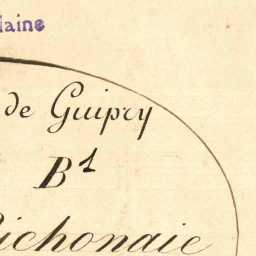 laine
de Guipry
B¹
ichonaie